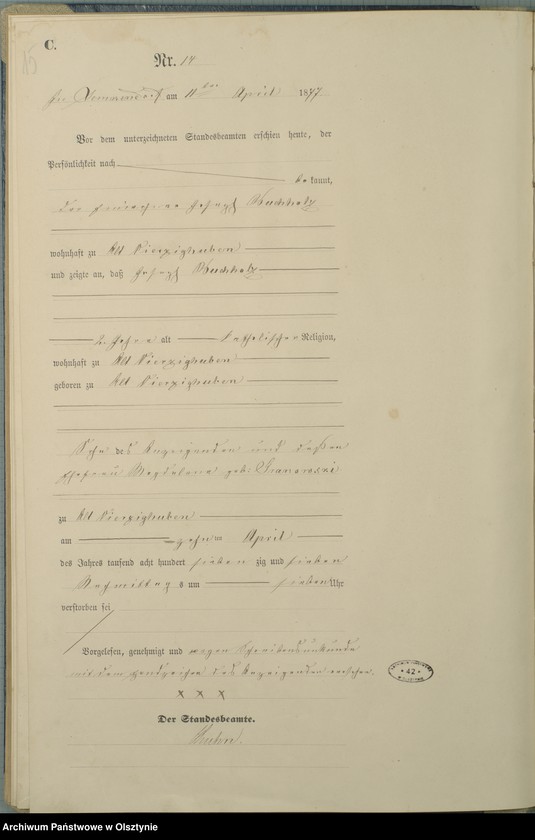 C.
15
Nr. 14
am 11ten April 1877
Vor dem unterzeichneten Standesbeamten erschien heute, der
Persönlichkeit nach
bekannt,
der Joseph Buchholz
wohnhaft zu Alt Vierzighuben
und zeigte an, daß Joseph Buchholz
2 Jahre alt katholischer Religion,
wohnhaft zu Alt Vierzighuben
geboren zu Alt Vierzighuben
Sohn des Anzeigenden und dessen
Ehefrau Magdalena geb:
zu Alt Vierzighuben
am zehnten April
des Jahres tausend acht hundert siebenzig und sieben
Nachmittags um sieben Uhr
verstorben sei
Vorgelesen, genehmigt und wegen Schreibensunkunde
mit dem Handzeichen des Anzeigenden versehen.
x x x
Der Standesbeamte.
42
Archiwum Państwowe w Olsztynie